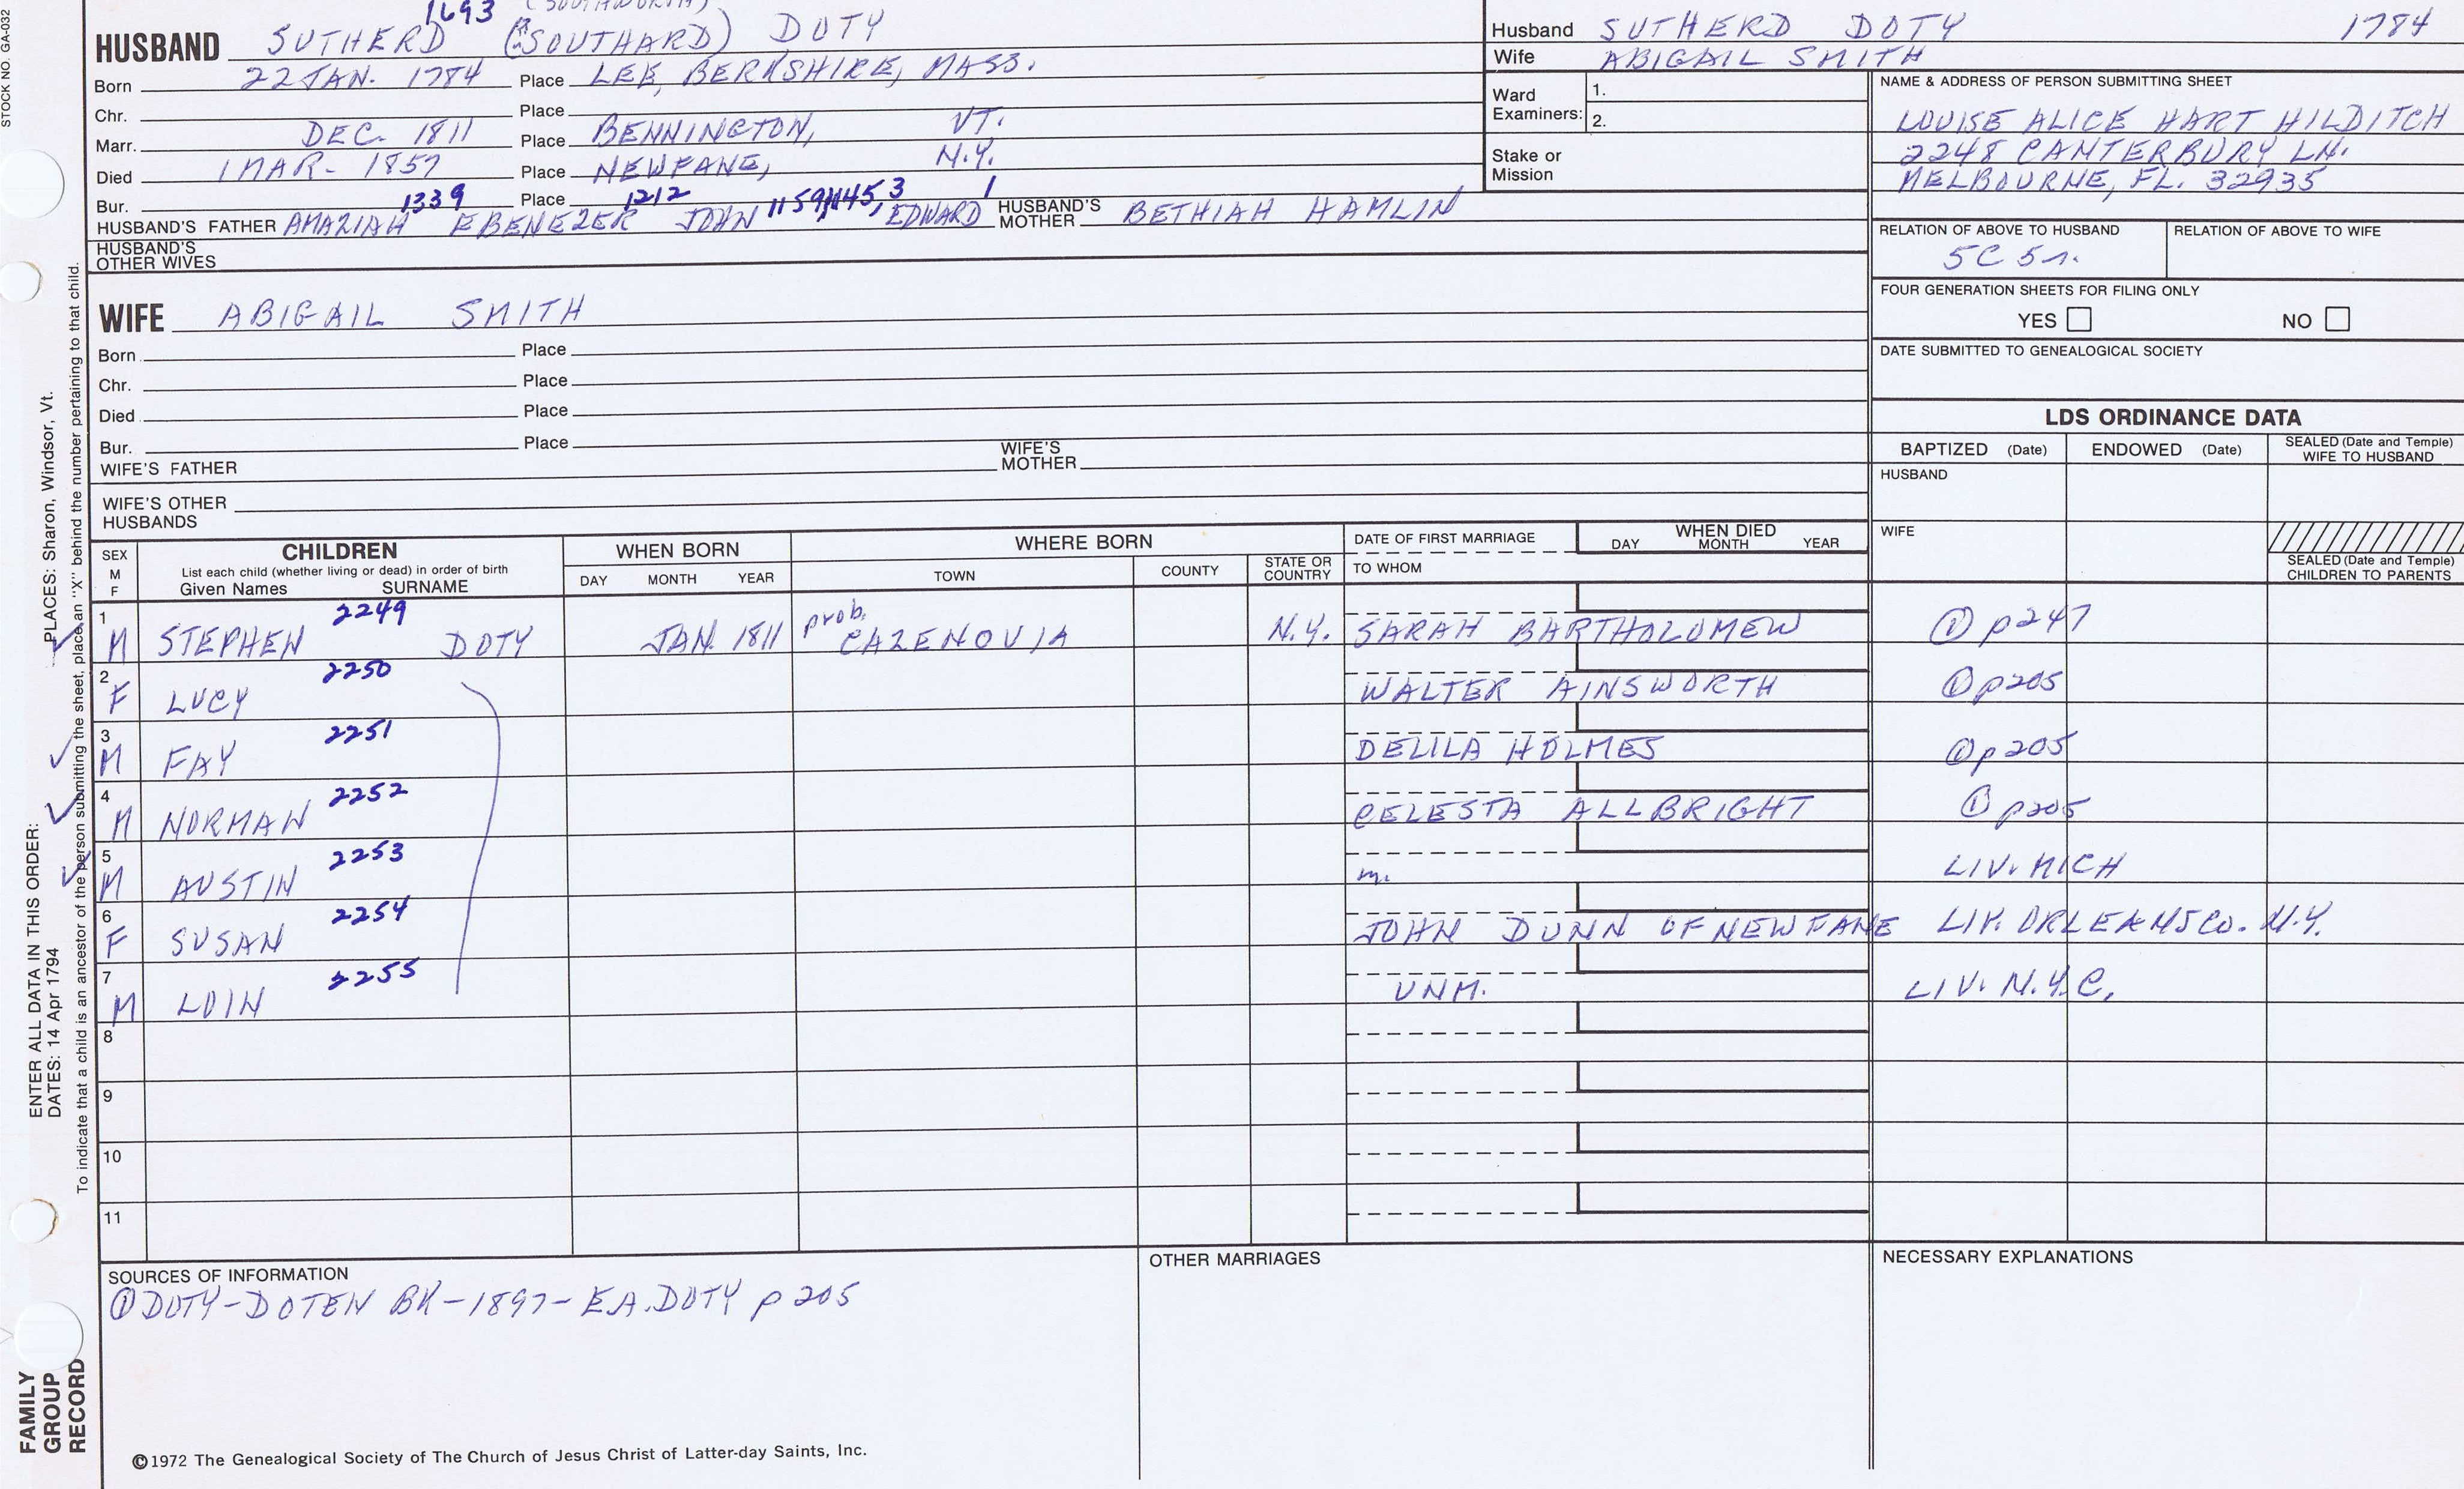 STOCK NO. GA-032
1693 (SOUTHWORTH)
HUSBAND SUTHERD (SOUTHARD) DOTY
Born 22 JAN. 1784 Place LEE, BERKSHIRE, MASS.
Chr. Place
Marr. DEC. 1811 Place BENNINGTON, VT.
Died 1 MAR- 1857 Place NEWFANE, N.Y.
Bur. Place
1339 1212 1159 3 1
HUSBAND'S FATHER AMAZIAH EBENEZER JOHN EDWARD HUSBAND'S MOTHER BETHIAH HAMLIN
HUSBAND'S OTHER WIVES
WIFE ABIGAIL SMITH
Born Place
Chr. Place
Died Place
Bur. Place
WIFE'S FATHER WIFE'S MOTHER
WIFE'S OTHER HUSBANDS
Husband SUTHERD DOTY 1784
Wife ABIGAIL SMITH
Ward Examiners: 1.
2.
Stake or Mission
NAME & ADDRESS OF PERSON SUBMITTING SHEET
LOUISE ALICE HART HILDITCH
2248 CANTERBURY LN.
MELBOURNE, FL. 32935
RELATION OF ABOVE TO HUSBAND RELATION OF ABOVE TO WIFE
5C 5r.
FOUR GENERATION SHEETS FOR FILING ONLY
YES NO
DATE SUBMITTED TO GENEALOGICAL SOCIETY
LDS ORDINANCE DATA
BAPTIZED (Date) ENDOWED (Date) SEALED (Date and Temple) WIFE TO HUSBAND
HUSBAND
WIFE
SEALED (Date and Temple) CHILDREN TO PARENTS
SEX M F CHILDREN List each child (whether living or dead) in order of birth Given Names SURNAME
WHEN BORN DAY MONTH YEAR
WHERE BORN TOWN COUNTY STATE OR COUNTRY
DATE OF FIRST MARRIAGE TO WHOM
WHEN DIED DAY MONTH YEAR
1 M STEPHEN 2249 DOTY JAN. 1811 prob. CAZENOVIA N.Y. SARAH BARTHOLOMEW ① p247
2 F LUCY 2250 WALTER AINSWORTH ① p205
3 M FAY 2251 DELILA HOLMES ① p205
4 M NORMAN 2252 CELESTA ALLBRIGHT ① p205
5 M AUSTIN 2253 m. LIV. MICH
6 F SUSAN 2254 JOHN DUNN OF NEWFANE LIV. ORLEANS CO. N.Y.
7 M LOIN 2255 UNM. LIV. N.Y.C.
8
9
10
11
SOURCES OF INFORMATION
① DOTY-DOTEN BK-1897-E.A.DOTY p 205
OTHER MARRIAGES
NECESSARY EXPLANATIONS
©1972 The Genealogical Society of The Church of Jesus Christ of Latter-day Saints, Inc.
ENTER ALL DATA IN THIS ORDER:
PLACES: Sharon, Windsor, Vt.
DATES: 14 Apr 1794
To indicate that a child is an ancestor of the person submitting the sheet, place an "X" behind the number pertaining to that child.
FAMILY
GROUP
RECORD